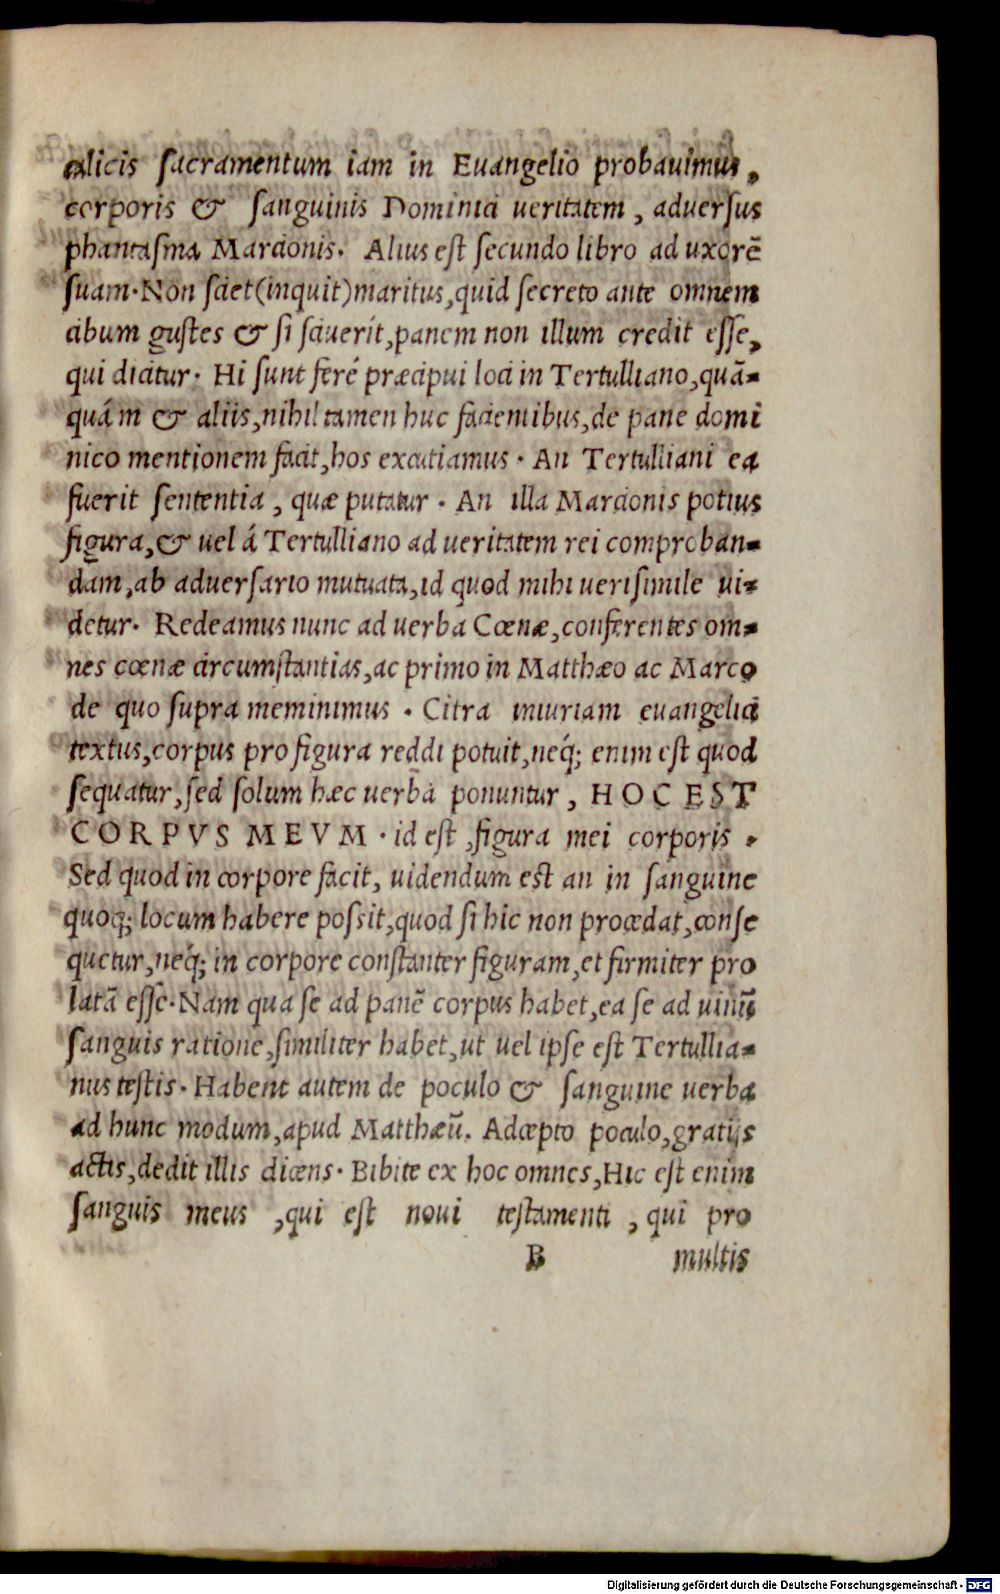 calicis sacramentum iam in Euangelio probauimus,
corporis & sanguinis Dominici ueritatem, aduersus
phantasma Marcionis. Alius est secundo libro ad uxorē
suam. Non sciet (inquit) maritus, quid secreto ante omnem
cibum gustes & si sciuerit, panem non illum credit esse,
qui dicitur. Hi sunt feré præcipui loci in Tertulliano, quā-
quám & aliis, nihil tamen huc facientibus, de pane domi
nico mentionem facit, hos excutiamus. An Tertulliani ea
fuerit sententia, quæ putatur. An illa Marcionis potius
figura, & uel á Tertulliano ad ueritatem rei comproban-
dam, ab aduersario mutuata, id quod mihi uerisimile ui-
detur. Redeamus nunc ad uerba Cœnæ, conferentes om-
nes cœnæ circumstantias, ac primo in Matthæo ac Marco
de quo supra meminimus. Citra iniuriam euangelici
textus, corpus pro figura reddi potuit, neq́; enim est quod
sequatur, sed solum hæc uerba ponuntur, HOC EST
CORPVS MEVM. id est, figura mei corporis.
Sed quod in corpore facit, uidendum est an in sanguine
quoq; locum habere possit, quod si hic non procedat, conse
quetur, neq́; in corpore constanter figuram, et firmiter pro
latā esse. Nam qua se ad panē corpus habet, ea se ad uinū
sanguis ratione, similiter habet, ut uel ipse est Tertullia-
nus testis. Habent autem de poculo & sanguine uerba
ad hunc modum, apud Matthæū. Accepto poculo, gratijs
actis, dedit illis dicens. Bibite ex hoc omnes, Hic est enim
sanguis meus, qui est noui testamenti, qui pro
B multis
Digitalisierung gefördert durch die Deutsche Forschungsgemeinschaft - DFG